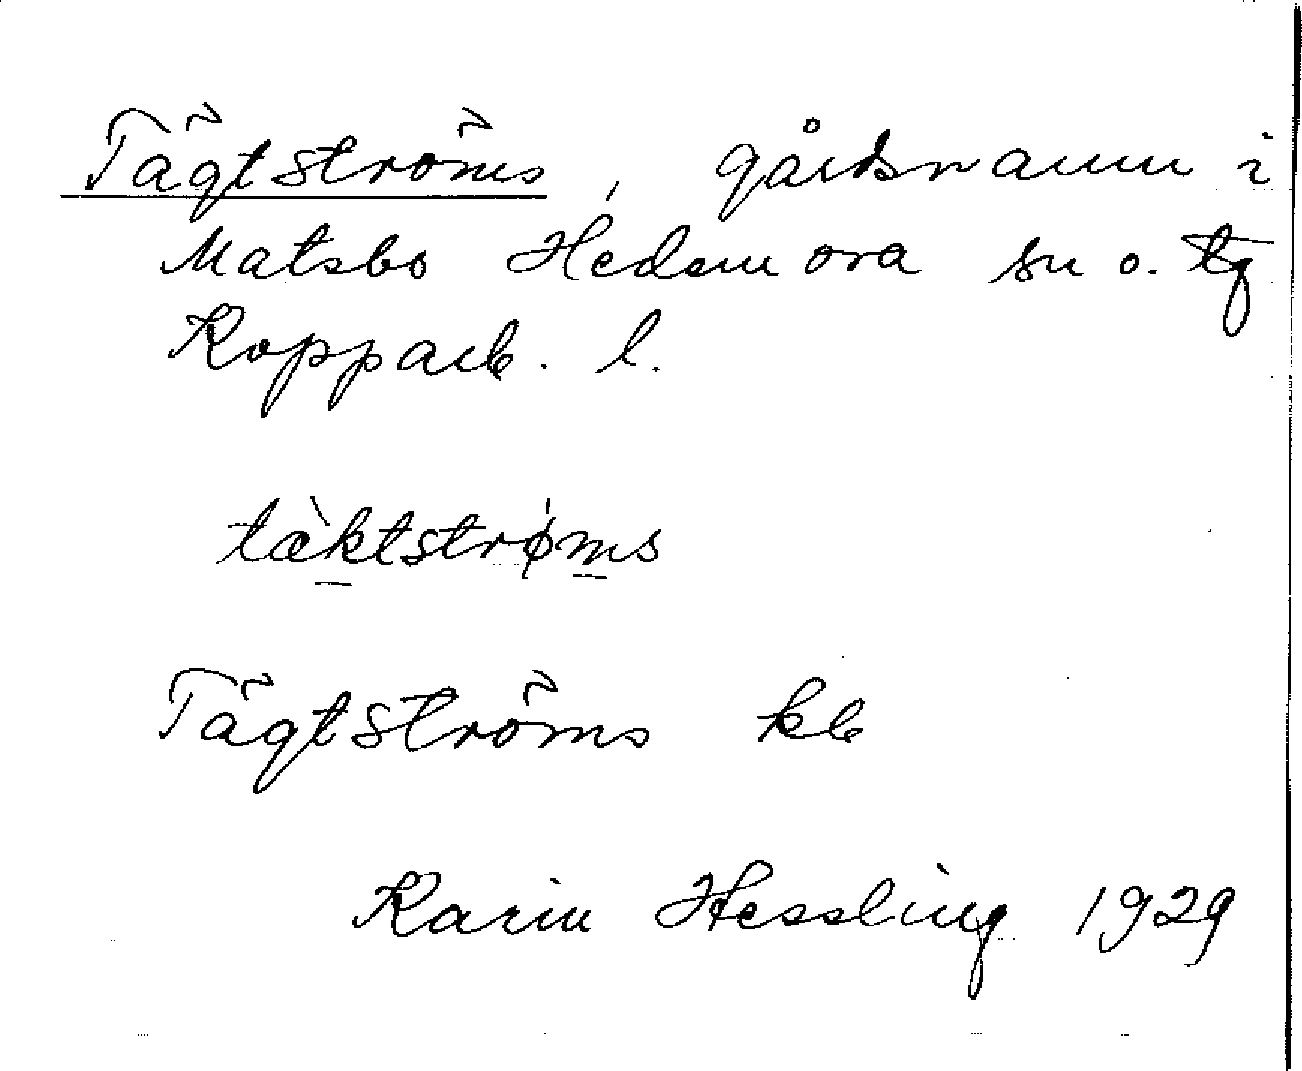 Tägtströms, gårdsnamn i
Matsbo Hedemora sn o. tg
Kopparb. l.
tæ̀ktstrǿms
Tägtströms kb
Karin Hessling 1929